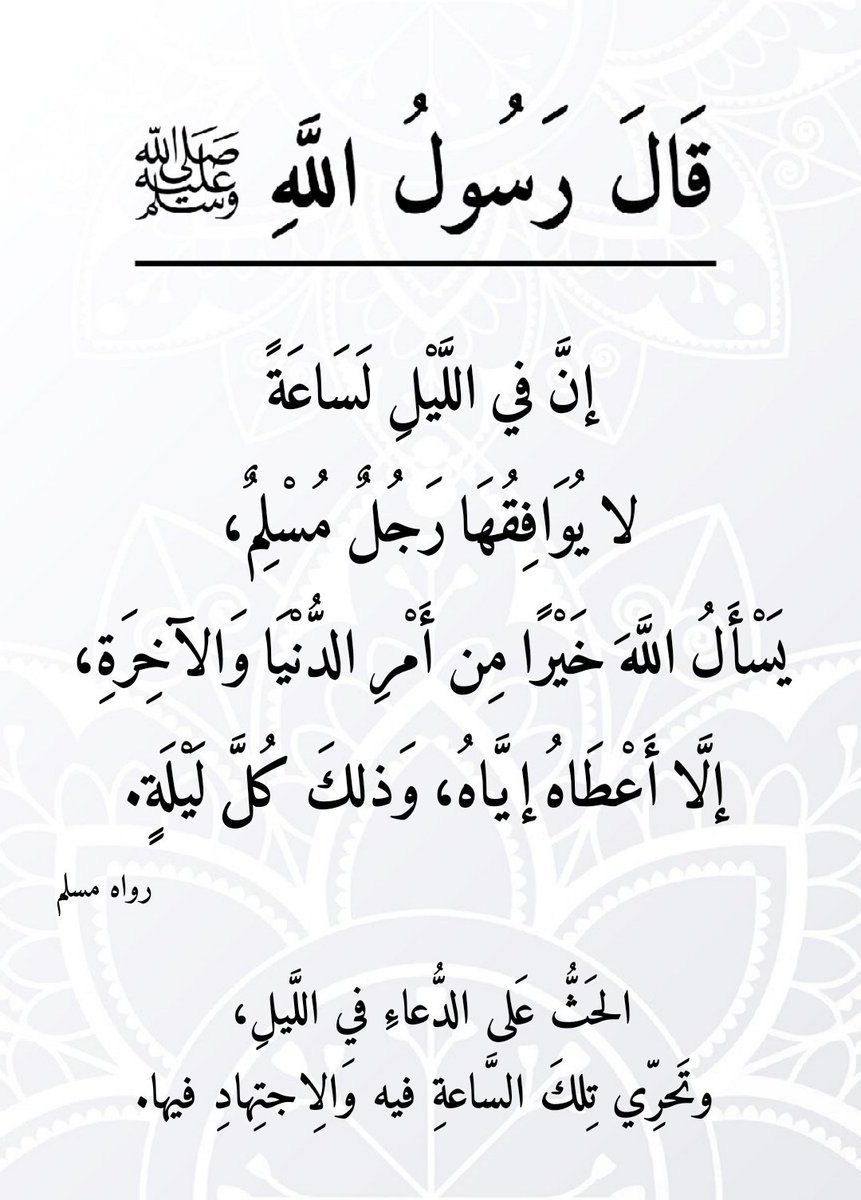 قَالَ رَسُولُ اللَّهِ ﷺ
إنَّ في اللَّيْلِ لَسَاعَةً
لا يُوَافِقُهَا رَجُلٌ مُسْلِمٌ،
يَسْأَلُ اللَّهَ خَيْرًا مِن أَمْرِ الدُّنْيَا وَالآخِرَةِ،
إلَّا أَعْطَاهُ إيَّاهُ، وَذلكَ كُلَّ لَيْلَةٍ.
رواه مسلم
الحَثُّ عَلى الدُّعاءِ في اللَّيلِ،
وتَحَرِّي تِلكَ السَّاعةِ فيه وَالِاجتِهادِ فيها.